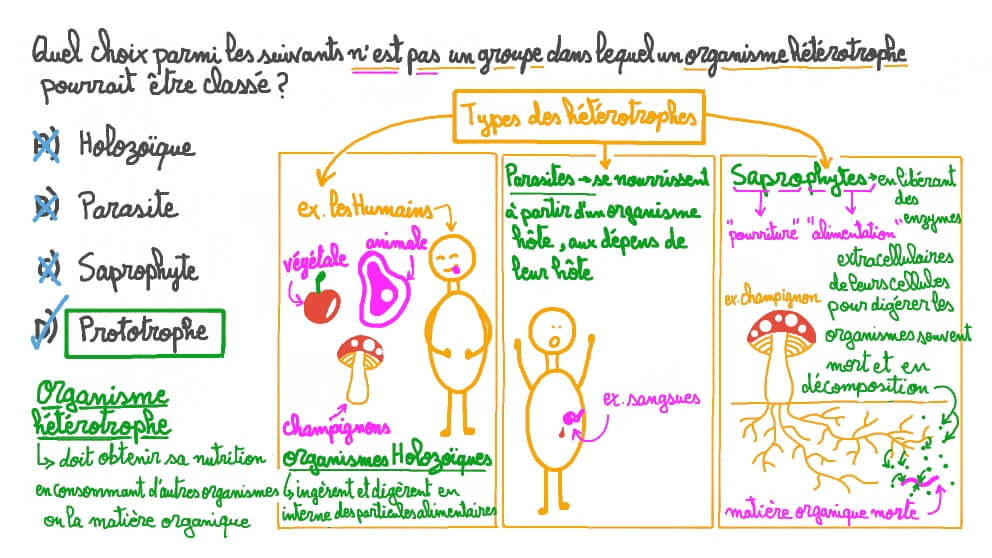 Quel choix parmi les suivants n'est pas un groupe dans lequel un organisme hétérotrophe
pourrait être classé ?
A) Holozoïque
B) Parasite
C) Saprophyte
D) Prototrophe
Organisme
hétérotrophe
↳ doit obtenir sa nutrition
en consommant d'autres organismes
ou la matière organique
Types des hétérotrophes
ex. les Humains
végétale
animale
champignons
organismes Holozoïques
↳ ingèrent et digèrent en
interne des particules alimentaires
Parasites → se nourrissent
à partir d'un organisme
hôte, aux dépens de
leur hôte
ex. sangsues
Saprophytes → en libérant
des
enzymes
"pourriture" "alimentation"
extracellulaires
de leurs cellules
pour digérer les
organismes souvent
mort et en
décomposition
ex. champignon
matière organique morte